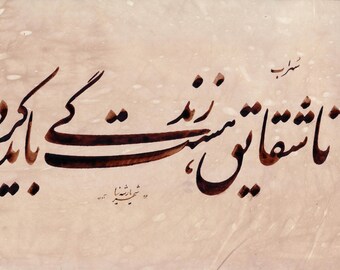 سهراب
تا شقایق هست، زندگی باید کرد